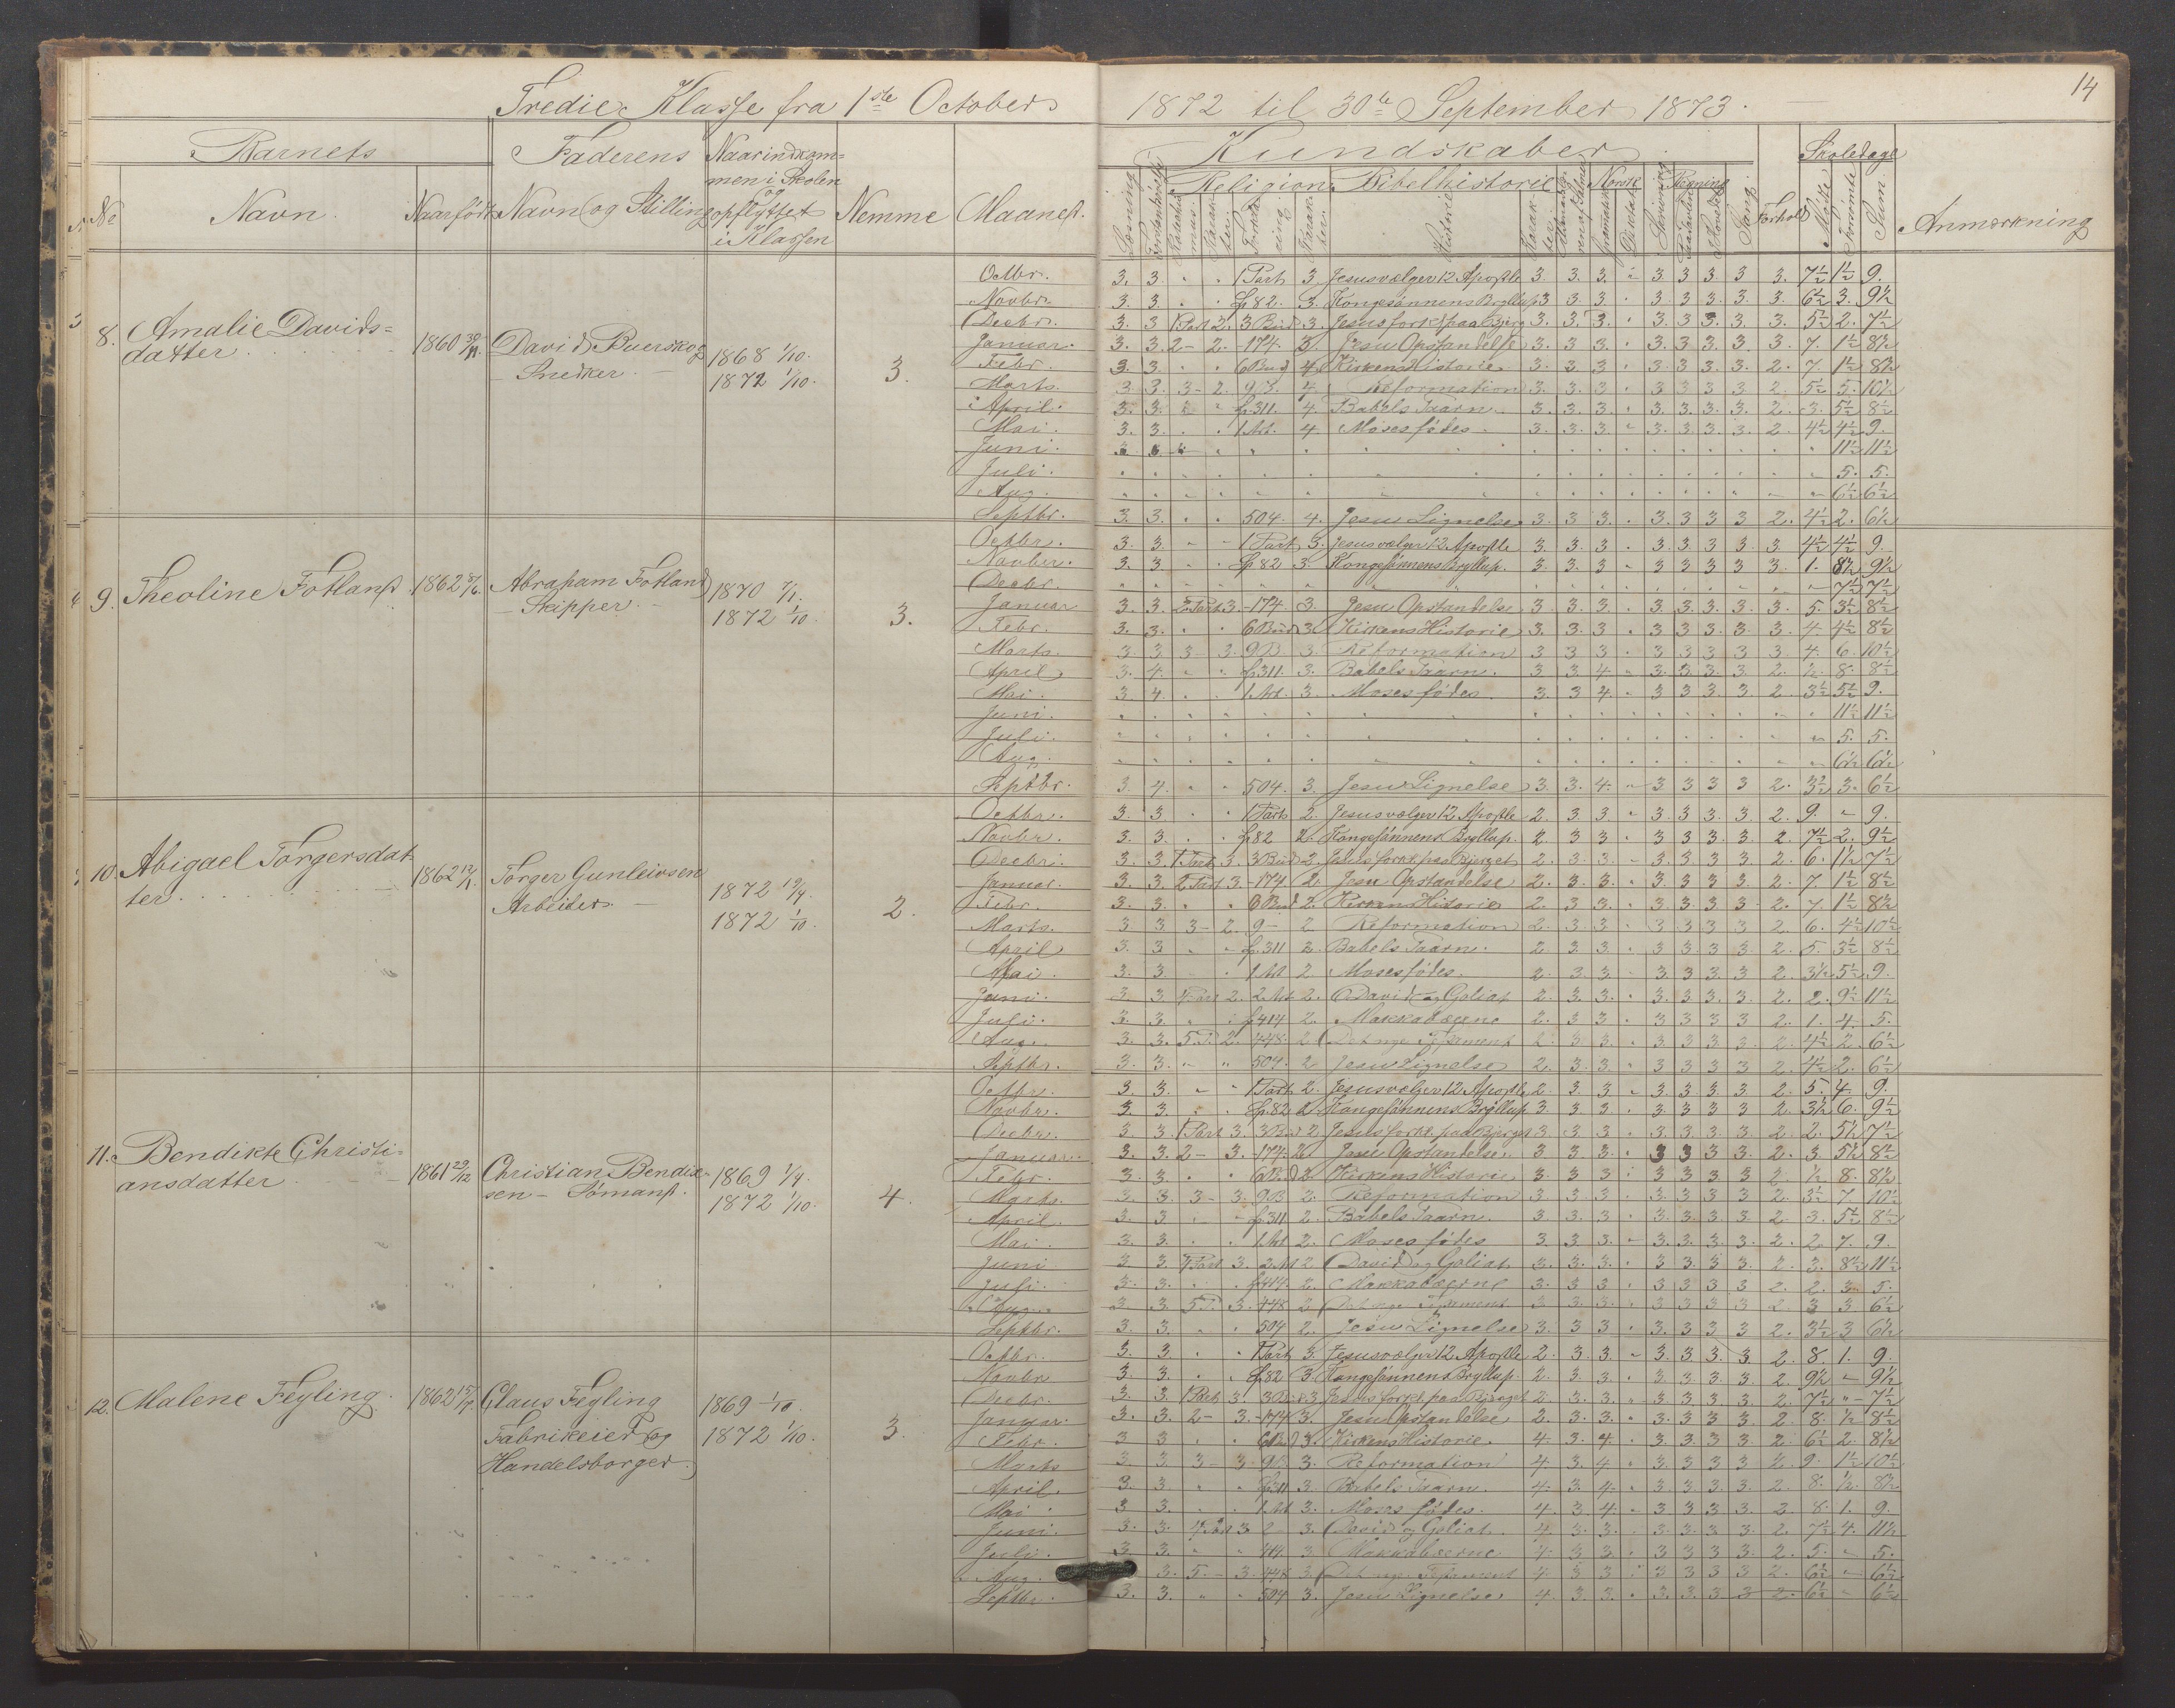 14
Tredie Klasse fra 1ste October 1872 til 30te September 1873.
Barnets Faderens Naar indkommen i Skolen og opflyttet i Klassen Nemme Maaned. Kundskaber Forhold Skoledage Anmærkning
No Navn. Naar født Navn og Stilling Læsning Religion Bibelhistorie Norsk Regning Sang Mødte Forsømte Sum
8. Amalie Davids=
datter 1860 30/11. David Buerskog
Snedker. 1868 1/10.
1872 1/10. 3.
Octbr. 3. 3. " " 1 Part 3. Jesus vælger 12 Apostle 3. 3. 3. " 3. 3 3. 3 3. 7½ 1½ 9.
Novbr. 3. 3. " " fr 82. 3. Kongesønnens Bryllup 3 3 3 " 3. 3. 3. 3. 3. 6½ 3. 9½
Decbr. 3. 3 1 Part 2. 3 Bud 3. Jesus forkl. paa Bjerg 3. 3. 3. " 3. 3 3. 3. 3. 5½ 2. 7½
Januar. 3. 3. 2 - 2. - 174. 3. Jesu Opstandelse 3. 3. 3. " 3. 3. 3. 3. 3. 7. 1½ 8½
Febr. 3. 3. " " 6 Bud 4. Kirkens Historie 3. 3. 3 " 3. 3 3. 3. 2. 7. 1½ 8½
Marts. 3. 3. 3 - 2. 9 B. 4. Reformation 3. 3. 3. " 3 3 3 3 2. 5½ 5. 10½
April. 3. 3. " " fr. 311. 4. Babels Taarn. 3. 3. 3. " 3. 3. 3. 3. 2. 3. 5½ 8½
Mai. 3. 3. " " 1 Art. 4. Moses fødes. 3. 3. 3. " 3. 3 3. 3. 2. 4½ 4½ 9.
Juni. 11½ 11½
Juli. 5. 5.
Aug. 6½ 6½
Septbr. 3. 3. " " 504. 4. Jesu Lignelse 3. 3 3. " 3. 3 3 3 2. 4½ 2. 6½
9. Theoline Fotland. 1862 Abraham Fotland
- Skipper. - 1870 7/1.
1872 1/10. 3.
Octbr. 3. 3. " " 1 Part 3. Jesus vælger 12 Apostle 3. 3. 3. " 3. 3. 3 3. 3. 4½ 4½ 9.
Novber. 3. 3 " " fr 82 3. Kongesønnens Bryllup. 3. 3. 3 " 3 3 3 3 3. 1. 8½ 9½
Decbr. 7½ 7½
Januar 3. 3. 2 Part 3. - 174. 3. Jesu Opstandelse 3. 3. 3. " 3. 3. 3. 3. 3. 5. 3½ 8½
Febr. 3. 3. " " 6 Bud 3. Kirkens Historie 3. 3. 3 " 3 3 3. 3. 3. 4. 4½ 8½
Marts. 3. 3 3 - 3. 9 B 3. Reformation 3 3 3 " 3 3 3 3 3. 4. 6. 10½
April 3. 4. " " fr 311. 3. Babels Taarn. 3 3 4 " 3. 3 3 3 2. ½ 8. 8½
Mai. 3. 4. " " 1 Art. 3. Moses fødes 3. 3 4. " 3 3 3 3. 2. 3½ 5½ 9.
Juni. 11½ 11½
Juli. 5. 5.
Aug. 6½ 6½
Septbr. 3. 4. " " 504. 3. Jesu Lignelse 3. 3. 4. " 3 3 3 3 2. 3½ 3. 6½
10. Abigael Torgersdat-
ter. 1862 12/1. Torger Gunleivsen
Arbeider. - 1872 19/4.
1872 1/10. 2.
Octbr. 3. 3. " " 1 Part 2. Jesus vælger 12 Apostle 2. 3. 3. " 3. 3. 3. 3 2. 9. " 9.
Novbr. 3. 3. " " fr 82 2. Kongesønnens Bryllup. 2. 3 3. " 3 3. 3. 3. 2. 7½ 2. 9½
Decbr. 3. 3. 1 Part 3. 3 Bud 2. Jesus forkl. paa Bjerget 2. 3. 3. " 3. 3. 3 3. 2. 6. 1½ 7½
Januar. 3. 3. 2 Part 3. - 174 2. Jesu Opstandelse 2. 3. 3. " 3. 3. 3 3. 2. 7. 1½ 8½
Febr. 3. 3. " " 6 Bud 2. Kirkens Historie 2. 3. 3. " 3. 3. 3. 3 2. 7. 1½ 8½
Marts. 3 3. 3 - 2. 9 - 2 Reformation 2. 3. 3 " 3 3. 3. 3 2. 6. 4½ 10½
April 3. 3 " " fr 311 2. Babels Taarn. 2 3. 3. " 3 3. 3. 3. 2. 5. 3½ 8½
Mai. 3. 3. " " 1 Art 2. Moses fødes. 2. 3. 3. " 3. 3. 3. 3 2. 3½ 5½ 9.
Juni. 3. 3. 4 Part 2. 2. Art 2. David og Goliat 2. 3. 3. " 3. 3 3. 3. 2. 2. 9½ 11½
Juli. 3. 3. " " fr 414 2. Makkabæerne 2. 3 3 " 3 3 3 3 2. 1. 4. 5.
Aug. 3. 3. 5 P. 2. 448. 2 Det nye Testament 2. 3 3. " 3. 3 3 3. 2. 4½ 2. 6½
Septbr. 3. 3. " " 504. 2 Jesu Lignelse 2. 3. 3. " 3 3 3 3 2. 4½ 2. 6½
11. Bendikte Christi-
ansdatter 1861 29/12 Christian Bendik-
sen - Sømand. 1869 1/4.
1872 1/10. 4.
Octbr. 3. 3. " " 1 Part 2. Jesus vælger 12 Apostle 2. 3. 3 " 3. 3 3. 3 2. 5. 4. 9.
Novbr. 3. 3. " " fr. 82 2. Kongesønnens Bryllup. 3. 3. 3 " 3. 3. 3 3 2. 3½ 6. 9½
Decbr. 3. 3. 1 Part 3. 3 Bud 2. Jesus forkl. paa Bjerget 3 3. 3 " 3. 3. 3. 3. 2. 2. 5½ 7½
Januar. 3. 3. 2 - 3. - 174. 2. Jesu Opstandelse. 3 3. 3. " 3 3 3. 3. 2. 3. 5½ 8½
Febr. 3. 3. " " 6 Bud 2. Kirkens Historie 3. 3 3 " 3 3 3 3 2. ½ 8. 8½
Marts. 3. 3. 3 - 3. 9 B 2. Reformation 3. 3 3 " 3. 3 3 3 2. 3½ 7. 10½
April. 3. 3 " " fr 311 2. Babels Taarn. 3. 3. 3 " 3. 3. 3. 3. 2. 3. 5½ 8½
Mai. 3. 3. " " 1 Art 2. Moses fødes 3. 3 3. " 3. 3. 3. 3. 2. 2 7. 9.
Juni 3 3. 4 Part 3. 2 Art 2. David og Goliat 3. 3. 3. " 3. 3. 3. 3. 2. 3. 8½ 11½
Juli. 3. 3. " " fr 414 2. Makkabæerne 3. 3 3 " 3 3 3 3 2. 2. 3. 5.
Aug. 3 3. 5 P. 3. 448 2 Det nye Testament 3 3. 3. " 3 3 3 3 2. 3 3 6½
Septbr. 3. 3. " " 504 2. Jesu Lignelse 3. 3 3 " 3. 3 3 3 2. 3½ 3 6½
12. Malene Feyling. 1862 Claus Feyling
Fabrikeier og
Handelsborger. 1869 1/10.
1872 1/10. 3.
Octbr. 3. 3. " " 1 Part 3. Jesus vælger 12 Apostle 2. 3. 3. " 3. 3. 3. 3 2. 8. 1. 9.
Novbr 3 3. " " fr 82 3. Kongesønnens Bryllup. 2. 3. 3 " 3. 3. 3. 3. 2 9½ " 9½
Decbr. 3. 3. 1 Part 3. 3 Bud 3 Jesus forkl. paa Bjerget 2. 3. 3. " 3. 3. 3. 3. 2. 7½ " 7½
Januar. 3. 3. 2 - 3. - 174 3. Jesu Opstandelse 2. 3. 3. " 3. 3. 3. 3. 2. 8. ½ 8½
Febr. 3 3 " " 6 Bud 3. Kirkens Historie. 4. 3. 4. " 3. 3. 3 3. 2. 6½ 2. 8½
Marts 3 3. 3 - 3. 9 B 3. Reformation 4. 3. 4 " 3. 3. 3. 3. 2. 9. 1½ 10½
April. 3. 3. " " fr 311 3. Babels Taarn. 4. 3. 4. " 3. 3. 3. 3. 2. 8. ½ 8½
Mai 3 3. " " 1 Art 3. Moses fødes. 4. 3. 4. " 3 3 3 3. 2. 8. 1. 9.
Juni. 3. 3. 4 Part 3 2 3. David og Goliat. 4. 3. 3. " 3. 3. 3. 3. 2. 7½ 4. 11½
Juli. 3 3. " " 414 3 Makkabæerne. 4. 3 3. " 3 3 3 3. 2. 5. " 5.
Aug. 3. 5. - 3. 448 3 Det nye Testament 4. 3 3 " 3 3 3 3 2. 6½ " 6½
Septbr. 3. 3. " " 504 3. Jesu Lignelse 4. 3. 3. " 3. 3. 3 3 2. 6½ " 6½